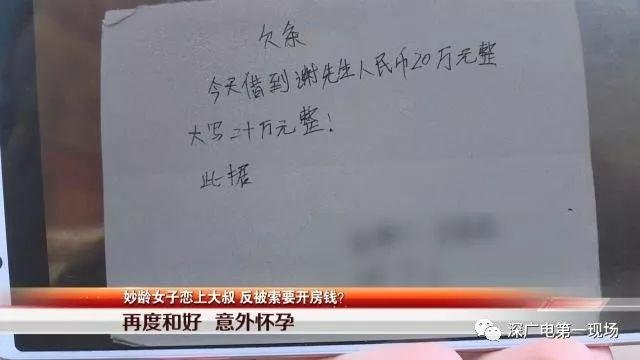 欠条
今天借到谢先生人民币20万元整
大写二十万元整！
此据
妙龄女子恋上大叔 反被索要开房钱？
再度和好 意外怀孕
深广电第一现场